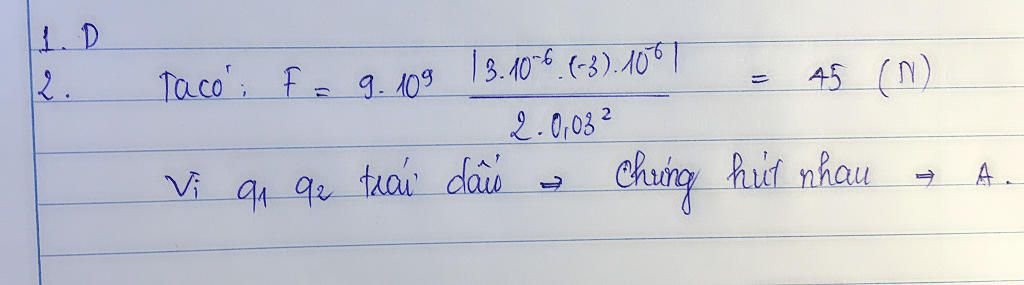 1. D
2. Ta có: F = 9.10⁹ |3.10⁻⁶.(-3).10⁻⁶| / 2.0,03² = 45 (N)
Vì q₁ q₂ trái dấu ⇒ Chúng hút nhau → A.